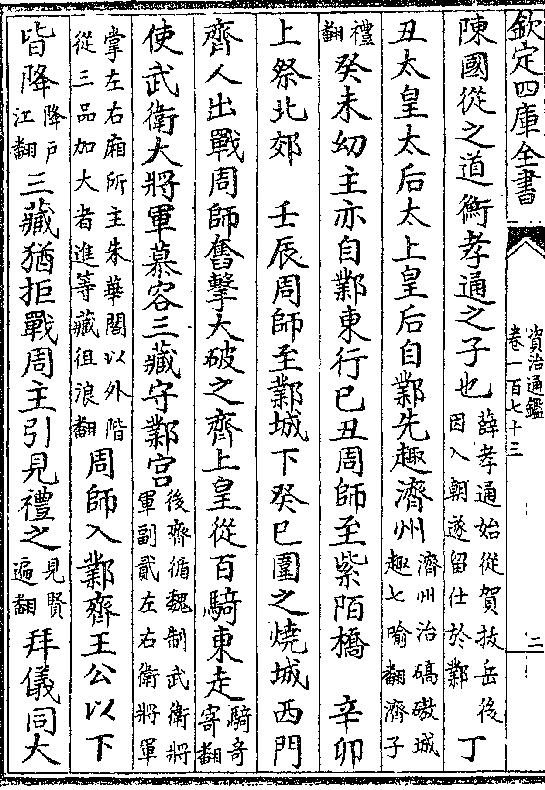 欽定四庫全書
資治通鑑
卷一百七十三
二
陳國從之道衡孝通之子也薛孝通始從賀拔岳後因入朝遂留仕於鄴丁
丑太皇太后太上皇后自鄴先趣濟州濟州治碻磝城趣七喻翻濟子
禮翻癸未幼主亦自鄴東行己丑周師至紫陌橋 辛卯
上祭北郊 壬辰周師至鄴城下癸巳圍之燒城西門
齊人出戰周師奮擊大破之齊上皇從百騎東走騎奇寄翻
使武衛大將軍慕容三藏守鄴宮後齊循魏制武衛將軍副貳左右衛將軍
掌左右廂所主朱華閤以外階從三品加大者進等藏徂浪翻周師入鄴齊王公以下
皆降降戶江翻三藏猶拒戰周主引見禮之見賢遍翻拜儀同大